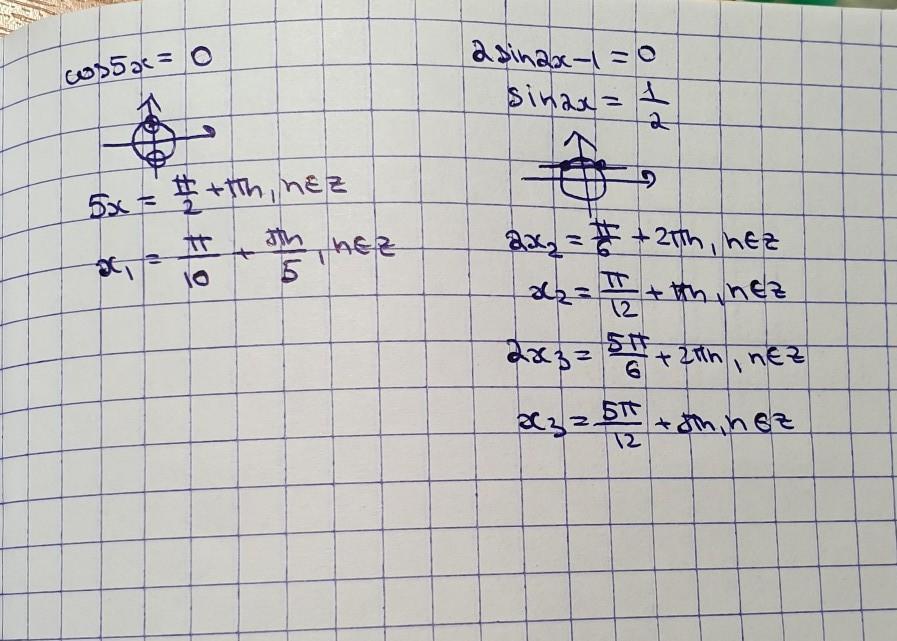 cos5x = 0
5x = π/2 + πn, n∈Z
x₁ = π/10 + πn/5, n∈Z
2sin2x-1 = 0
sin2x = 1/2
2x₂ = π/6 + 2πn, n∈Z
x₂ = π/12 + πn, n∈Z
2x₃ = 5π/6 + 2πn, n∈Z
x₃ = 5π/12 + πn, n∈Z